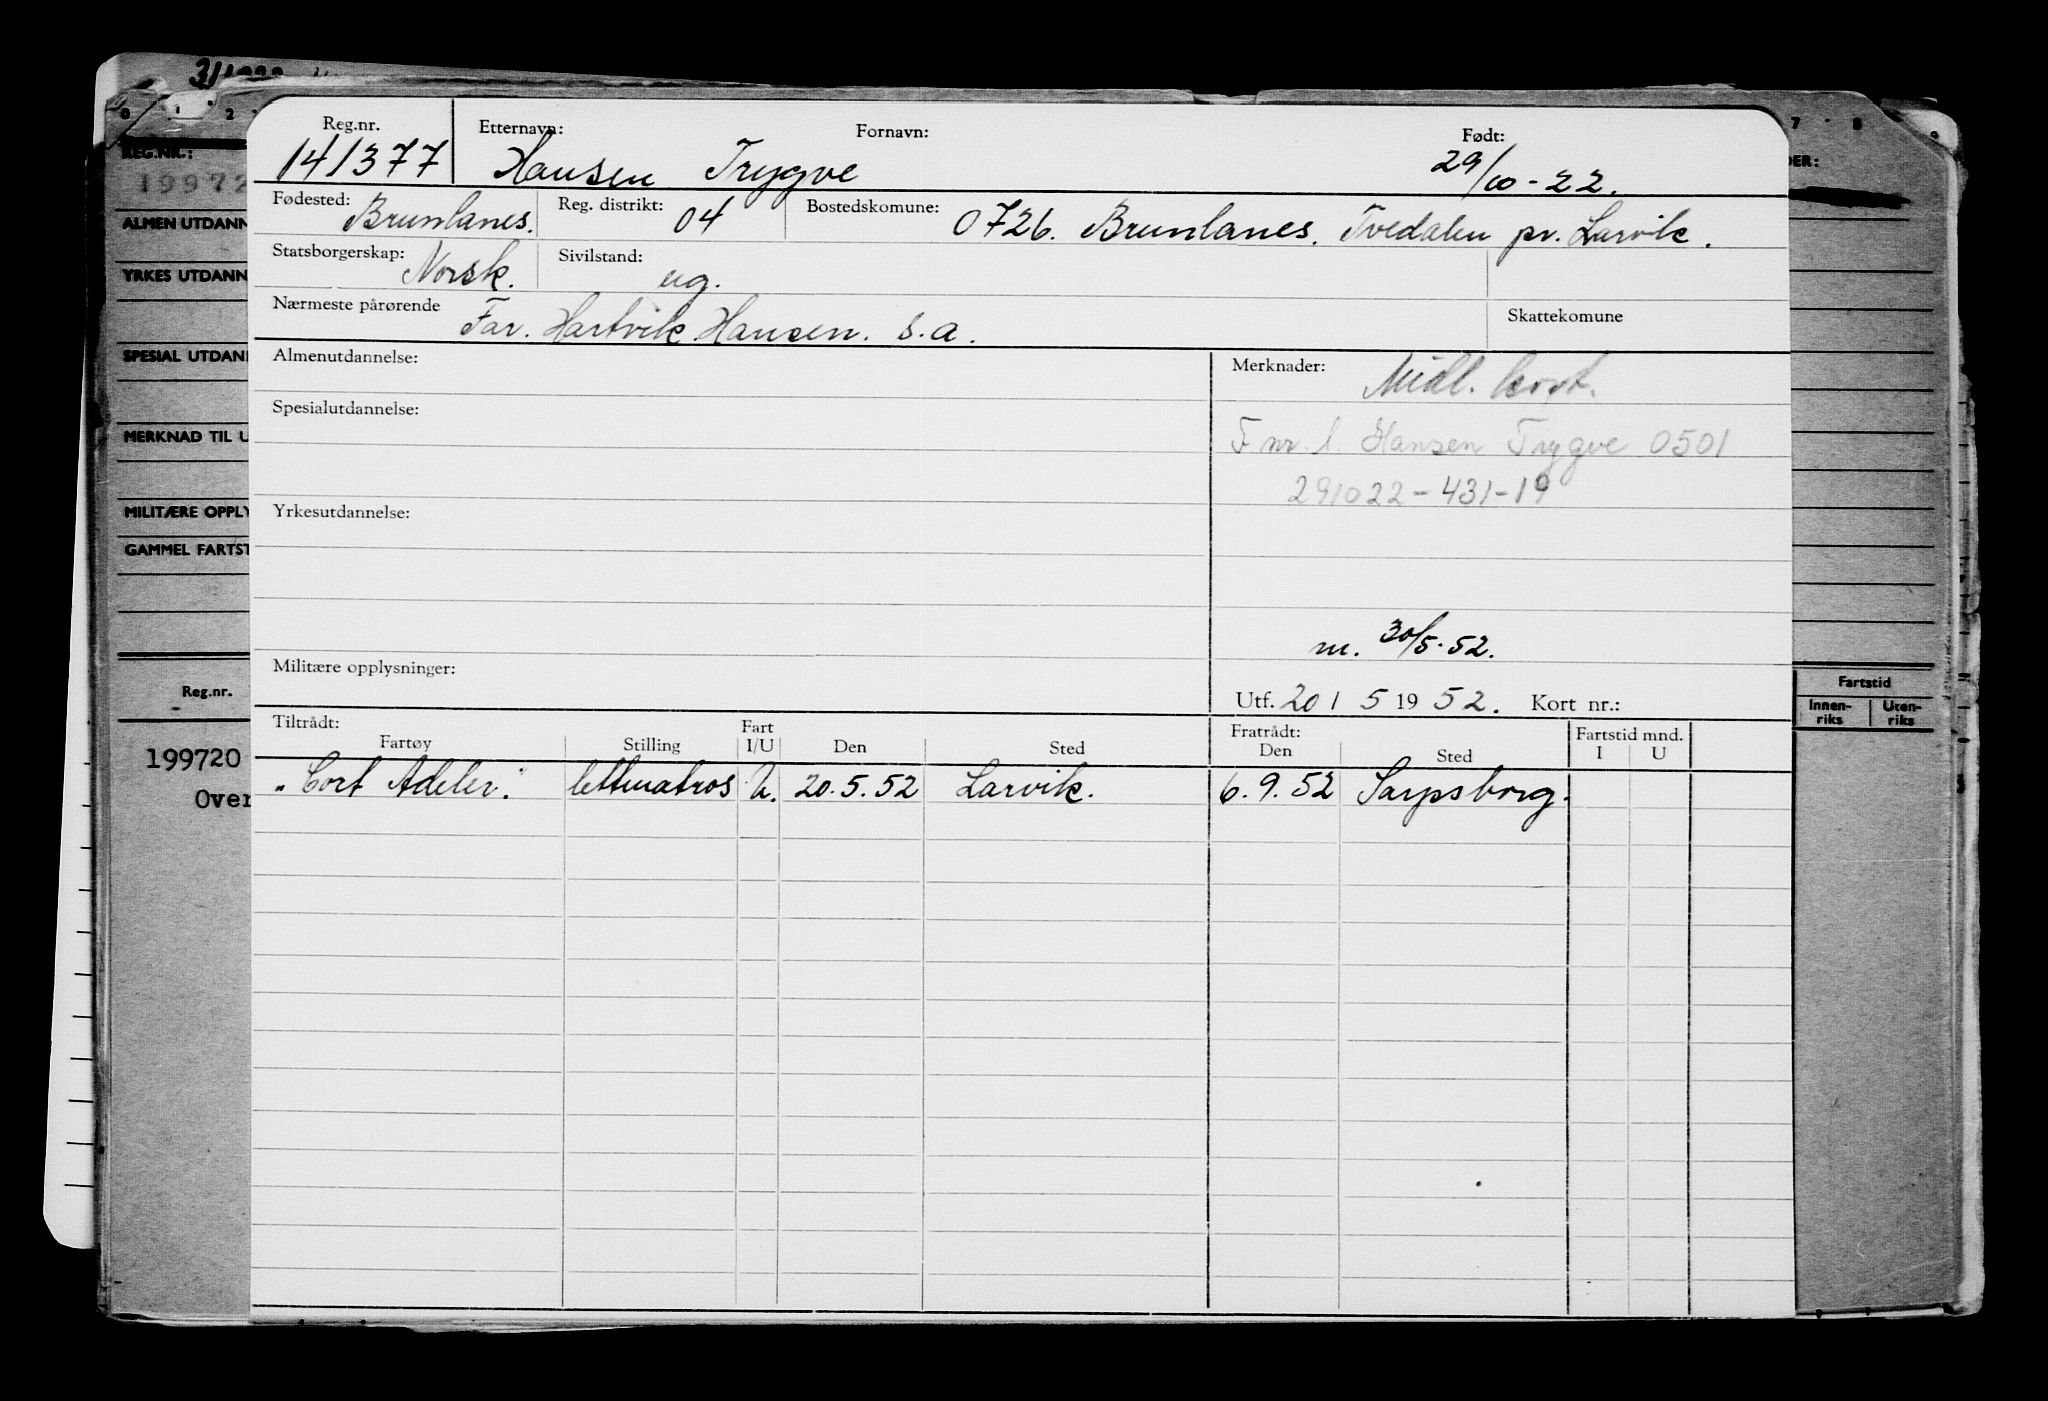 0 1 2
7 8 9
REG.NR.:
19972
ALMEN UTDANN
YRKES UTDANN
SPESIAL UTDAN
MERKNAD TIL U
MILITÆRE OPPLY
GAMMEL FARTST
Reg.nr.
199720
Over
DER:
Fartstid
Innen-riks Uten-riks
Reg.nr. Etternavn: Fornavn: Født:
141377 Hansen Trygve 29/10-22.
Fødested: Brunlanes. Reg. distrikt: 04 Bostedskomune: 0726. Brunlanes. Tvedalen pr. Larvik.
Statsborgerskap: Norsk. Sivilstand: ug.
Nærmeste pårørende Far. Hartvik Hansen. s.a. Skattekomune
Almenutdannelse: Merknader: Midl. kort.
Spesialutdannelse: F nr. l. Hansen Trygve 0501
291022-431-19
Yrkesutdannelse:
m. 30/5-52.
Militære opplysninger:
Utf. 20 / 5 19 52. Kort nr.:
Tiltrådt: Fart Fratrådt: Fartstid mnd.
Fartøy Stilling I/U Den Sted Den Sted I U
"Cort Adeler." lettmatros U. 20.5.52 Larvik. 6.9.52 Sarpsborg.